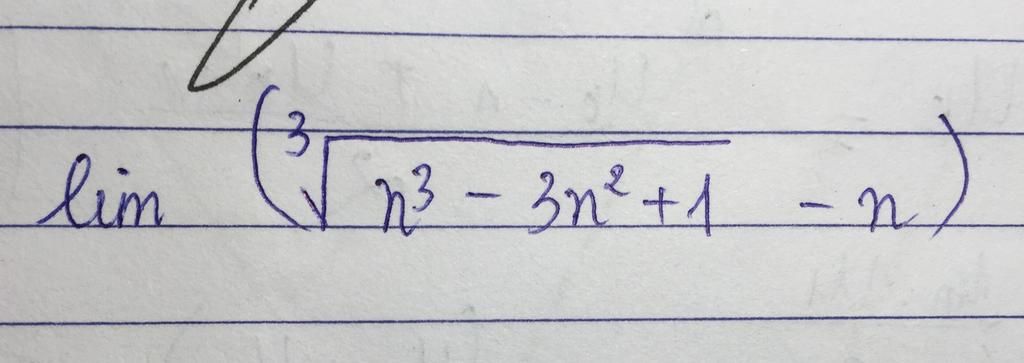 lim (∛(n³ - 3n² + 1) - n)